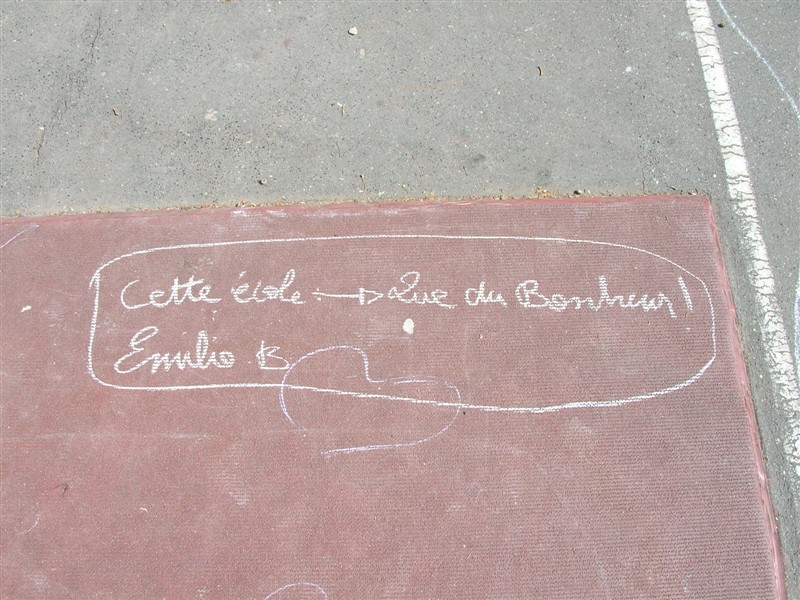 Cette école → Que du Bonheur !
Emilio B